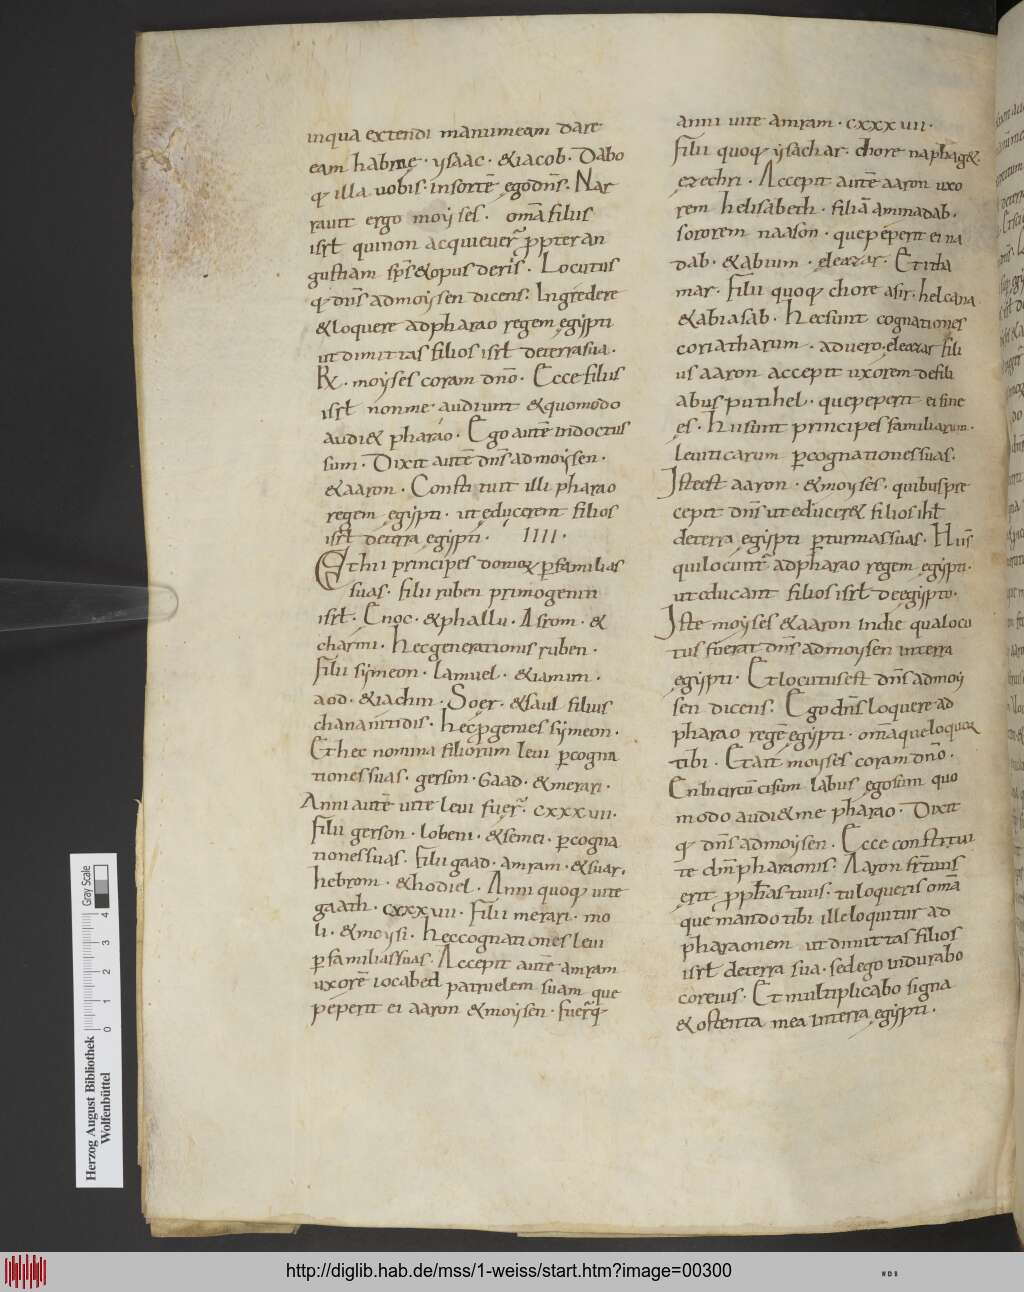 inqua extendi manumeam dare
eam habrae · ysaac · &iacob · Dabo
q; illa uobis · insortē egodn̄s · Nar
rauit ergo moyses · om̄a filiis
isrł quinon acquieuer̄ ppter an
gustiam sp̄s &opus deris · Locutus
q; dn̄s admoysen dicens: Ingredere
&loquere adpharao regem egypti
ut dimittas filios isrł deterrasua ·
R̵ · moyses coram dn̄o · Ecce filus
isrł nonme audiunt &quomodo
audi& pharao · Ego autē indoctus
sum · Dixit autē dn̄s admoysen ·
&aaron · Constituit illi pharao
regem egypti · ut educerent filios
isrł deterra egypti · IIII ·
Ethii principes domoz p̱familias
suas · filii ruben primogenin
isrł · Enoc · &phallu · Asrom · &
charmi · hecgenerationis ruben ·
filii symeon · lamuel · &iamim ·
aod · &iachin · Soer · &saul filius
chananitidis · hecp̱genies symeon ·
Et hec nomina filiorum leui p̱cogna
tiones suas · gerson · Gaad · &merari ·
Anni autē uite leui fuer̄ · cxxxvii ·
filii gerson · lobeni · &semei · p̱cogna
tiones suas · filii gaad · amram · &suar ·
hebrom · &hodiel · Anni quoq; uite
gaath · cxxxvii · filii merari · mo
li · &moysi · heccognationes leui
p̱familias suas · Accepit autē amram
uxorē iocabed patruelem suam que
peperit ei aaron &moysen · fuer̄q;
anni uite amram · cxxxvii ·
filii quoq; ysachar · chore naphag& ·
ezechri · Accepit autē aaron uxo
rem helisabeth · filiā aminadab ·
sororem naason · quepeperit ei na
dab · &abium · eleazar · Etitha
mar · filii quoq; chore asir · helcana
&abiasab · hecsunt cognationes
coriatharum · aduero eleazar fili
us aaron accepit uxorem defili
abus putihel · quepeperit eifine
es · hii sunt principes familiarum ·
leuiticarum p̱cognationes suas ·
Isteest aaron · &moyses · quibus pre
cepit dn̄s ut educer& filios ihł
deterra egypti p̱turmas suas · Hii s̄
quilocunt̄ adpharao regem egypti ·
ut educant filios isrł deegypto ·
Iste moyses &aaron indie qua locu
tus fuerat dn̄s admoysen interra
egypti · Et locutus est dn̄s admoy
sen dicens: Ego dn̄s loquere ad
pharao regē egypti · om̄aqueloquor
tibi · Etait moyses coram dn̄o ·
En incircū cisum labiis ego sum quo
modo audi&me pharao · Dixit
q; dn̄s admoysen · Ecce constitui
te dm̄ pharaonis · Aaron fr̄tuus
erit pph̄as tuus · tu loqueris om̄a
que mando tibi ille loquitur ad
pharaonem ut dimittas filios
isrł deterra sua · sedego indurabo
coreius · Et multiplicabo signa
&ostenta mea interra egypti ·
Gray Scale
0 1 2 3 4
Herzog August Bibliothek
Wolfenbüttel
http://diglib.hab.de/mss/1-weiss/start.htm?image=00300